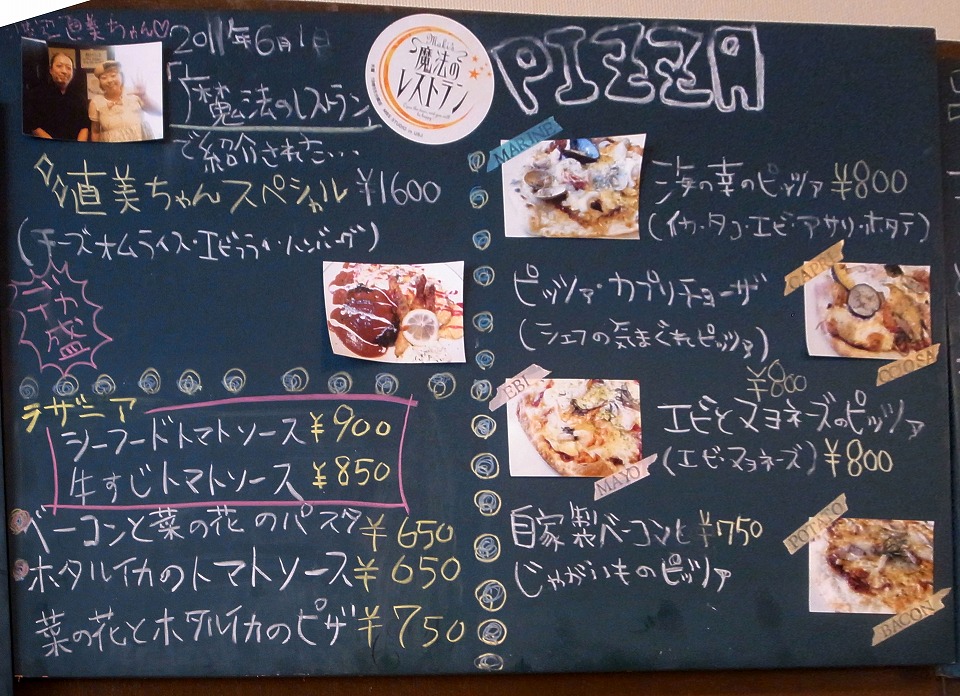 直美ちゃん♡
2011年6月1日
「魔法のレストラン」
で紹介された…
直美ちゃんスペシャル ¥1600
(チーズオムライス・エビフライ・ハンバーグ)
デカ
盛
ラザニア
シーフードトマトソース ¥900
牛すじトマトソース ¥850
ベーコンと菜の花のパスタ ¥650
ホタルイカのトマトソース ¥650
菜の花とホタルイカのピザ ¥750
魔法の
レストラン
PIZZA
MARINE
海の幸のピッツァ ¥800
(イカ・タコ・エビ・アサリ・ホタテ)
CAPRI
ピッツァ・カプリチョーザ
(シェフの気まぐれピッツァ)
¥800
CIOOSA
EBI
エビとマヨネーズのピッツァ
(エビ・マヨネーズ) ¥800
MAYO
自家製ベーコンと ¥750
じゃがいものピッツァ
POTATO
BACON